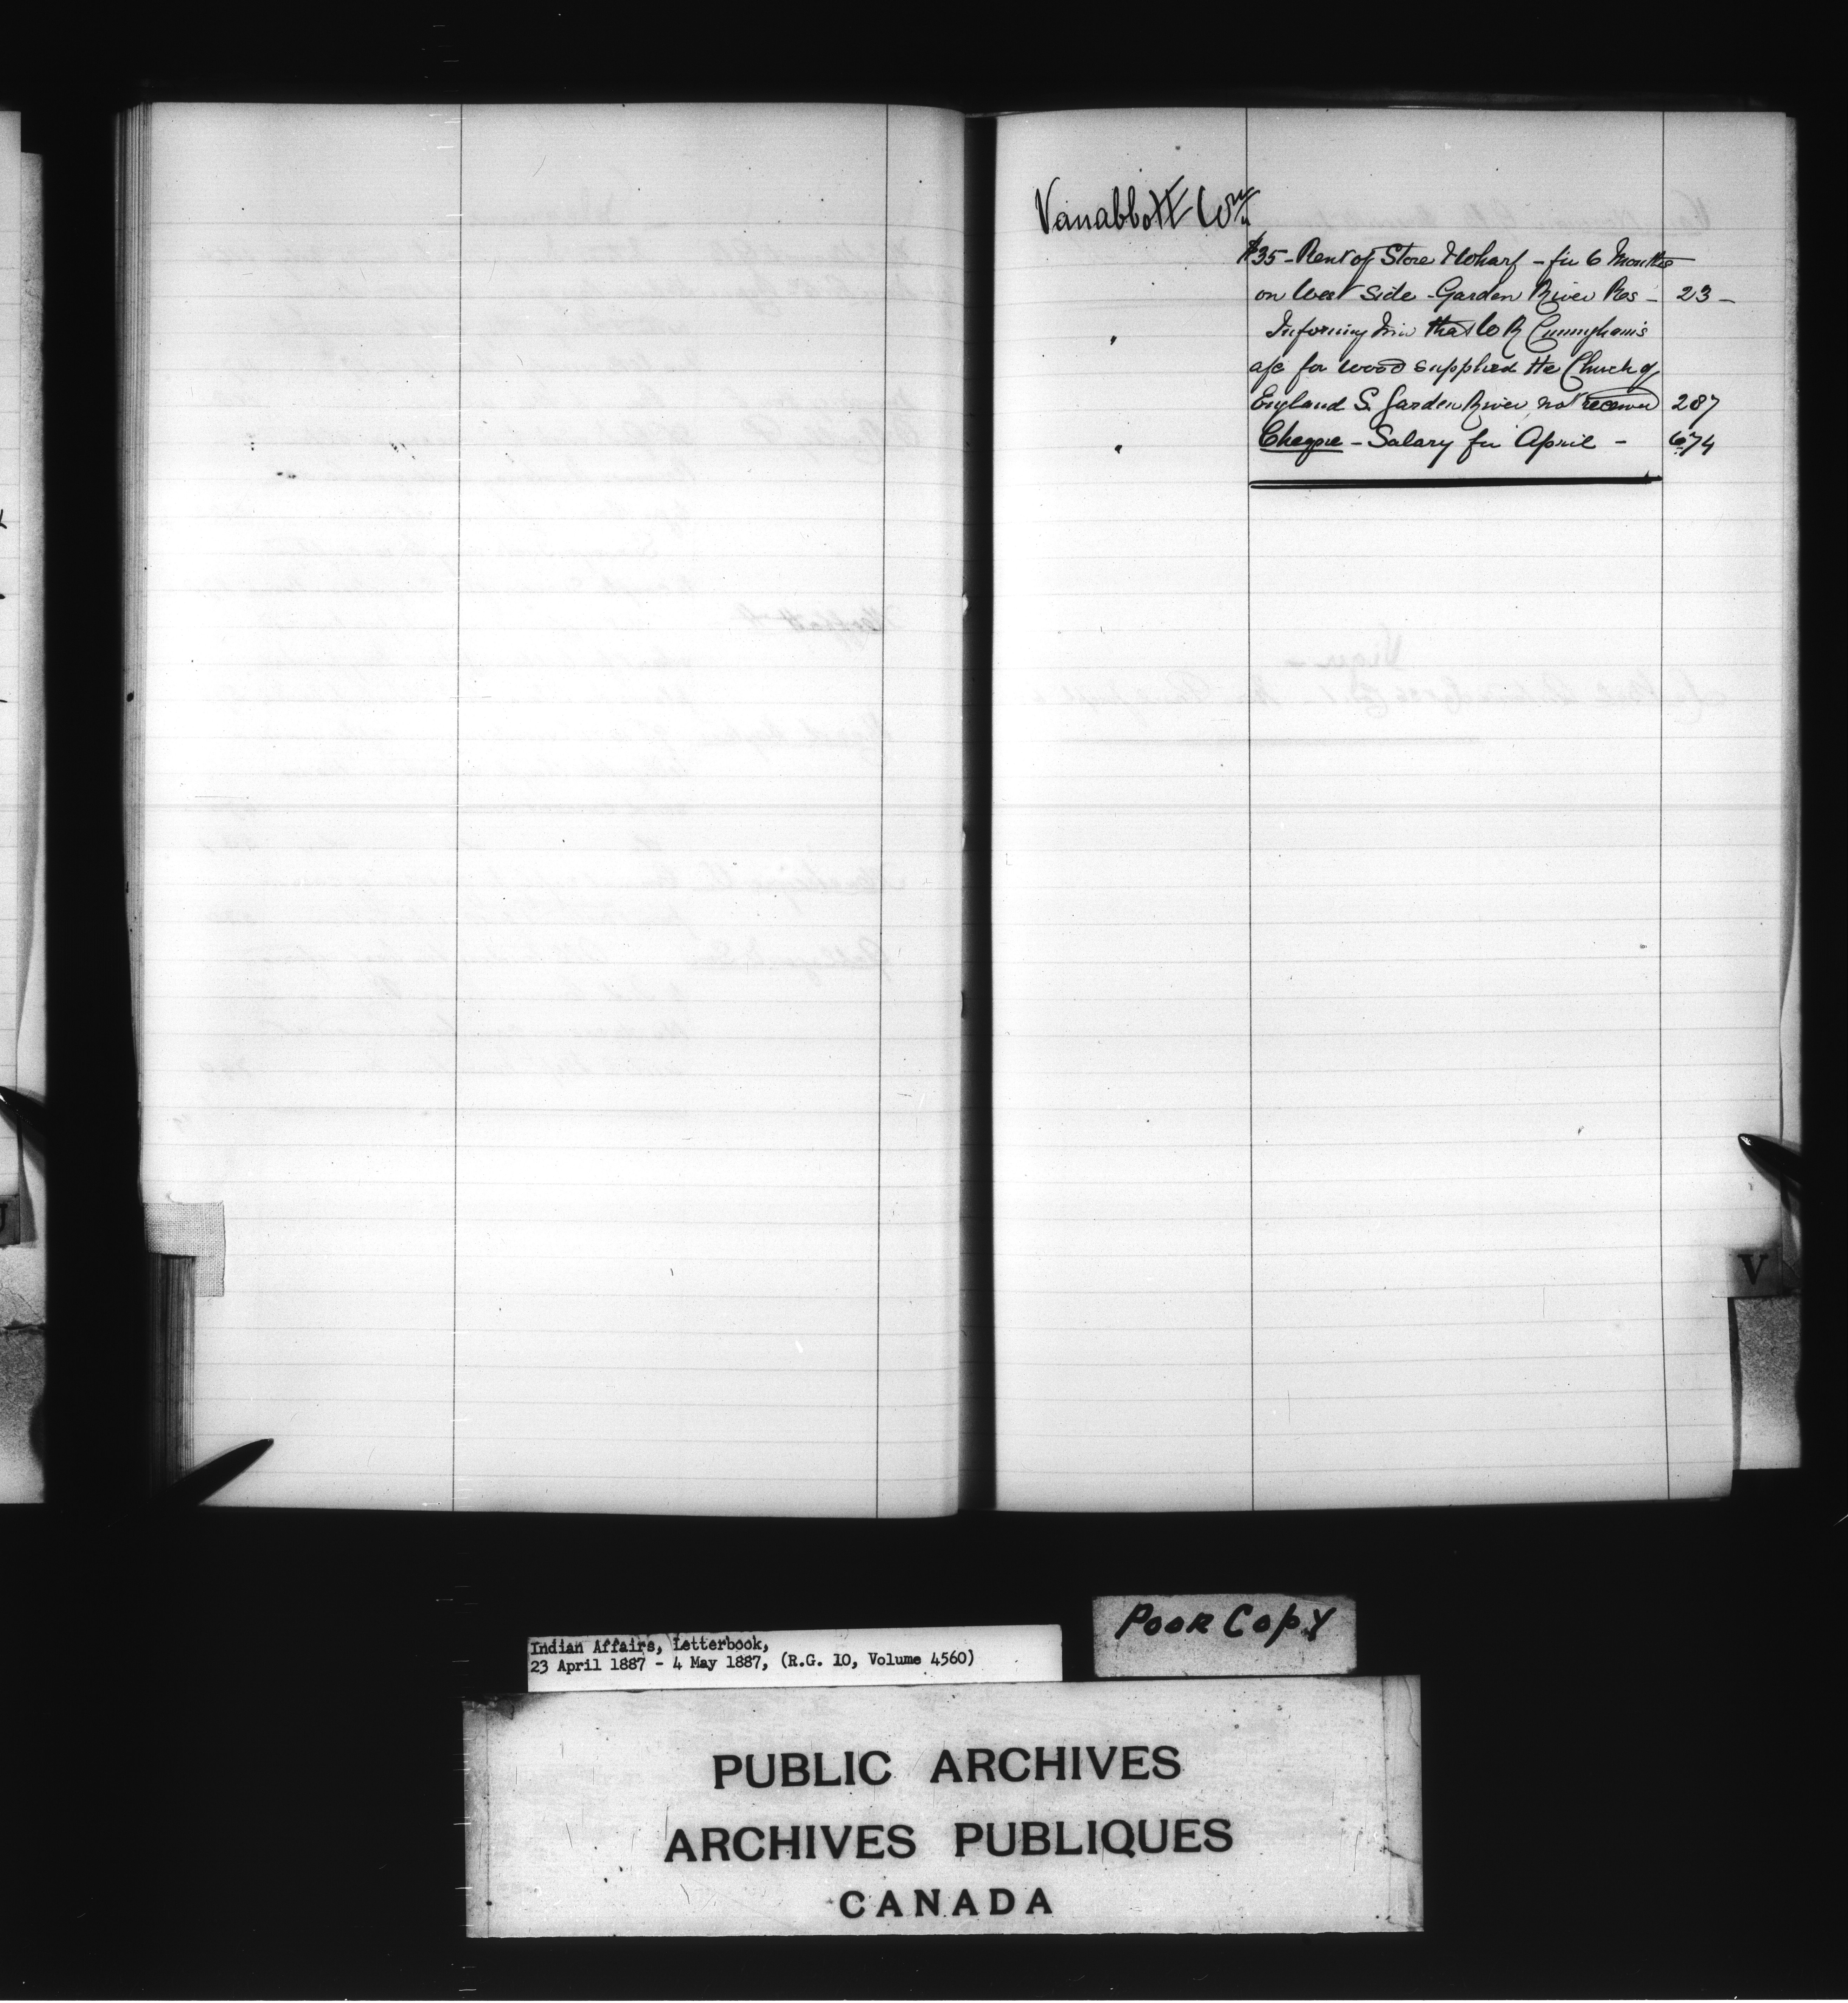 Vanabbott Wm
$35 - Rent of Store & Wharf - for 6 Months
on West Side - Garden River Res - 23 -
" Informing him that W R Cunningham's
a/c for wood supplied the Church of
England S. Garden River not received 287
" Cheque - Salary for April - 674
V
Poor Copy
Indian Affairs, Letterbook,
23 April 1887 - 4 May 1887, (R.G. 10, Volume 4560)
PUBLIC ARCHIVES
ARCHIVES PUBLIQUES
CANADA